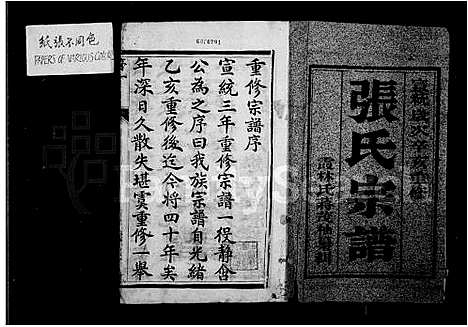 張氏宗譜
重修宗譜序
宣統三年重修宗譜一役靜舍
公為之序曰我族宗譜自光緒
乙亥重修後迄今將四十年矣
年深日久散失堪虞重修一舉
紙張不同色
PAPERS OF VARIOUS COLO